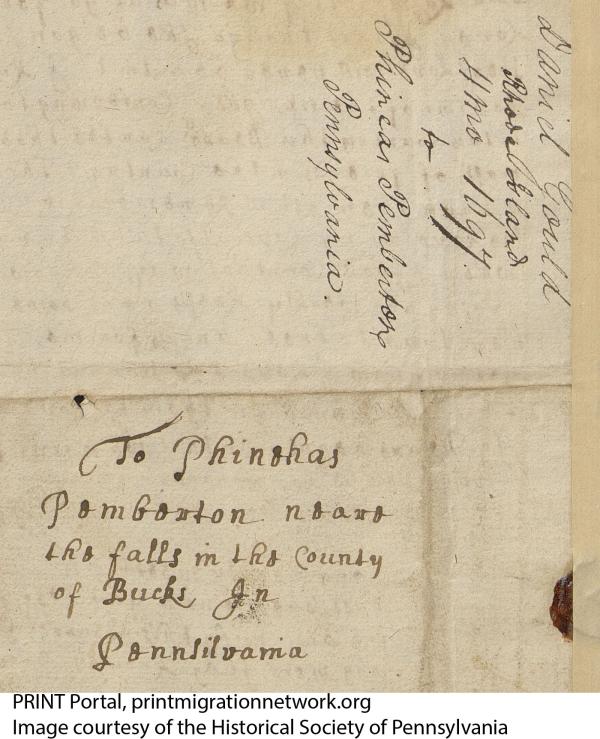 Daniel Gould
Rhode Island
4 mo 1697
to
Phineas Pemberton
Pennsylvania
To Phinehas
Pemberton neare
the falls in the County
of Bucks In
Pennsilvania
PRINT Portal, printmigrationnetwork.org
Image courtesy of the Historical Society of Pennsylvania